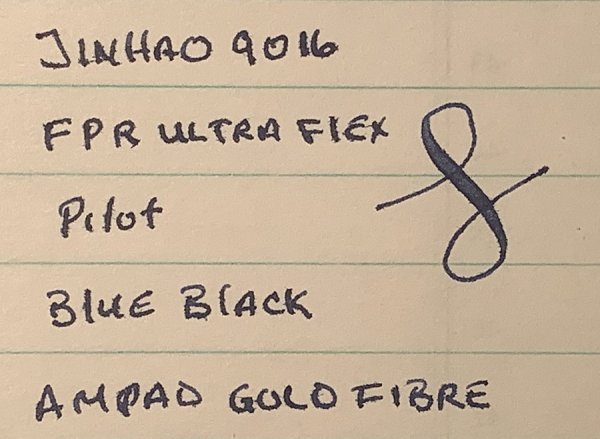 JINHAO 9016
FPR ULTRA FlEX
Pilot
BlUE BlACK
AMPAD GOLD FIBRE